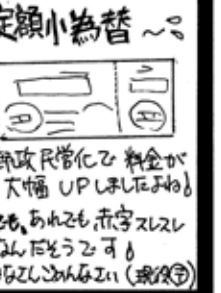 定額小為替～
郵政民営化で料金が
大幅UPしましたよね
でも、あれでも、赤字スレスレ
なんだそうです
ごめんなさい (現役〒)